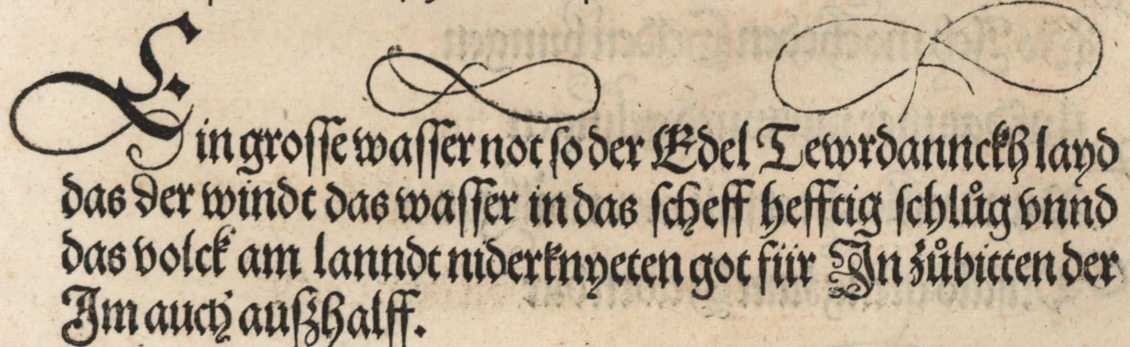 Ein grosse wasser not so der Edel Tewrdannckh layd
das der windt das wasser in das scheff hefftig schlůg vnnd
das volck am lanndt niderknyeten got für In zůbitten der
Im auch außhalff.